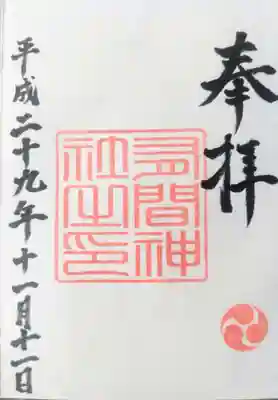 奉拝
有間神
社之印
平成二十九年十一月十一日